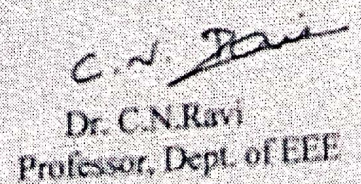 C. N. Ravi
Dr. C.N.Ravi
Professor, Dept. of EEE